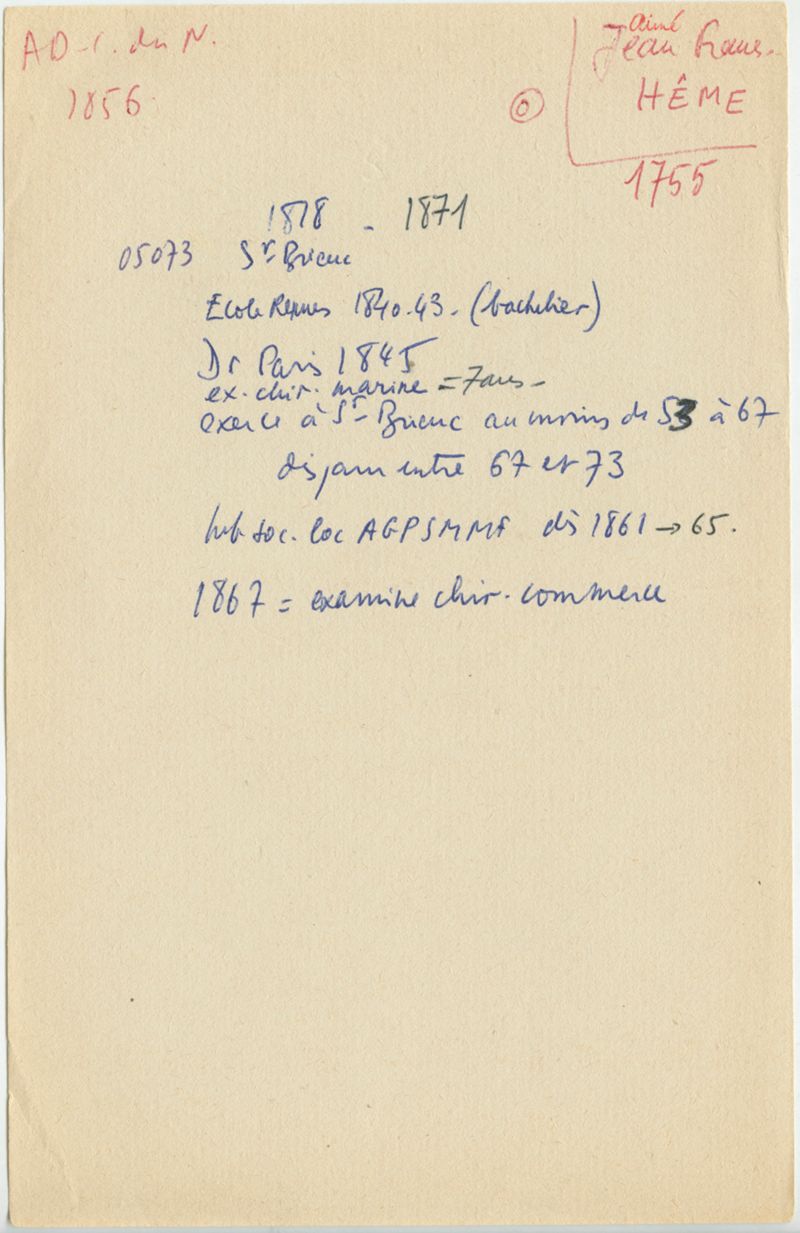 AD - C. du N.
1856
aimé
Jean Franc.
HÊME
1755
1818 - 1871
05073 St Brieuc
Ecole Rennes 1840.43. (bachelier)
Dr Paris 1845
ex. chir. marine = 7 ans -
exerce à St-Brieuc au moins de 53 à 67
disparu entre 67 et 73
soc. loc AGPSMMF dès 1861 → 65.
1867 = examine chir. commerce